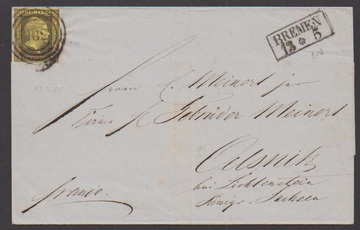 BREMEN
13 * 5
Herrn C. Meinert jr
Firma Gebrüder Meinert
Oelsnitz
bei Lichtenstein
Königr. Sachsen
franco.